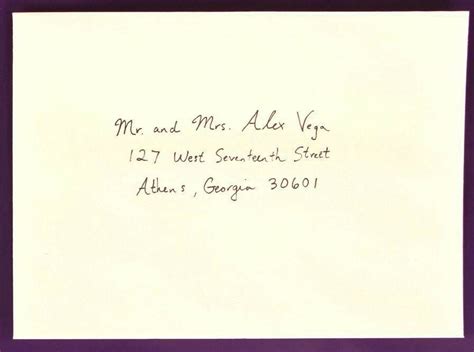 Mr. and Mrs. Alex Vega
127 West Seventeenth Street
Athens, Georgia 30601